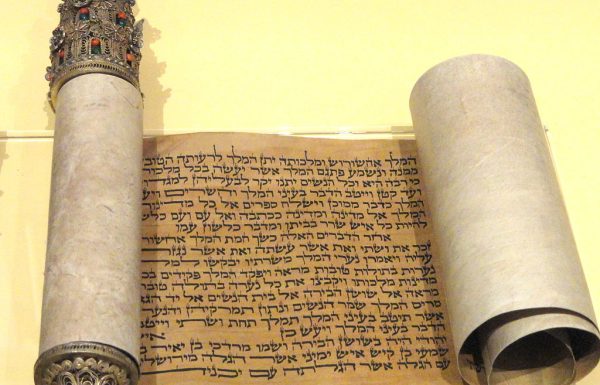 המלך אחשורוש ומלכותה יתן המלך לרעותה הטובה
ממנה ונשמע פתגם המלך אשר יעשה בכל
כי רבה היא וכל הנשים יתנו יקר לבעליהן
ועד קטן וייטב הדבר בעיני המלך והשרים ויעש
המלך כדבר ממוכן וישלח ספרים אל כל
המלך אל מדינה ומדינה ככתבה ואל עם ועם
להיות כל איש שרר בביתו ומדבר כלשון עמו
אחר הדברים האלה כשך חמת המלך אחשורוש
זכר את ושתי ואת אשר עשתה ואת אשר נגזר
עליה ויאמרו נערי המלך משרתיו יבקשו
נערות בתולות טובות מראה ויפקד המלך פקידים בכל
מדינות מלכותו ויקבצו את כל נערה בתולה טובת
מראה אל שושן הבירה אל בית הנשים אל יד הגא
סריס המלך שמר הנשים ונתון תמרקיהן והנערה
אשר תיטב בעיני המלך תמלך תחת ושתי וייטב
הדבר בעיני המלך ויעש כן איש
יהודי היה בשושן הבירה ושמו מרדכי בן יאיר בן
שמעי בן קיש איש ימיני אשר הגלה מירושלים
עם הגלה אשר הגלתה עם יכניה